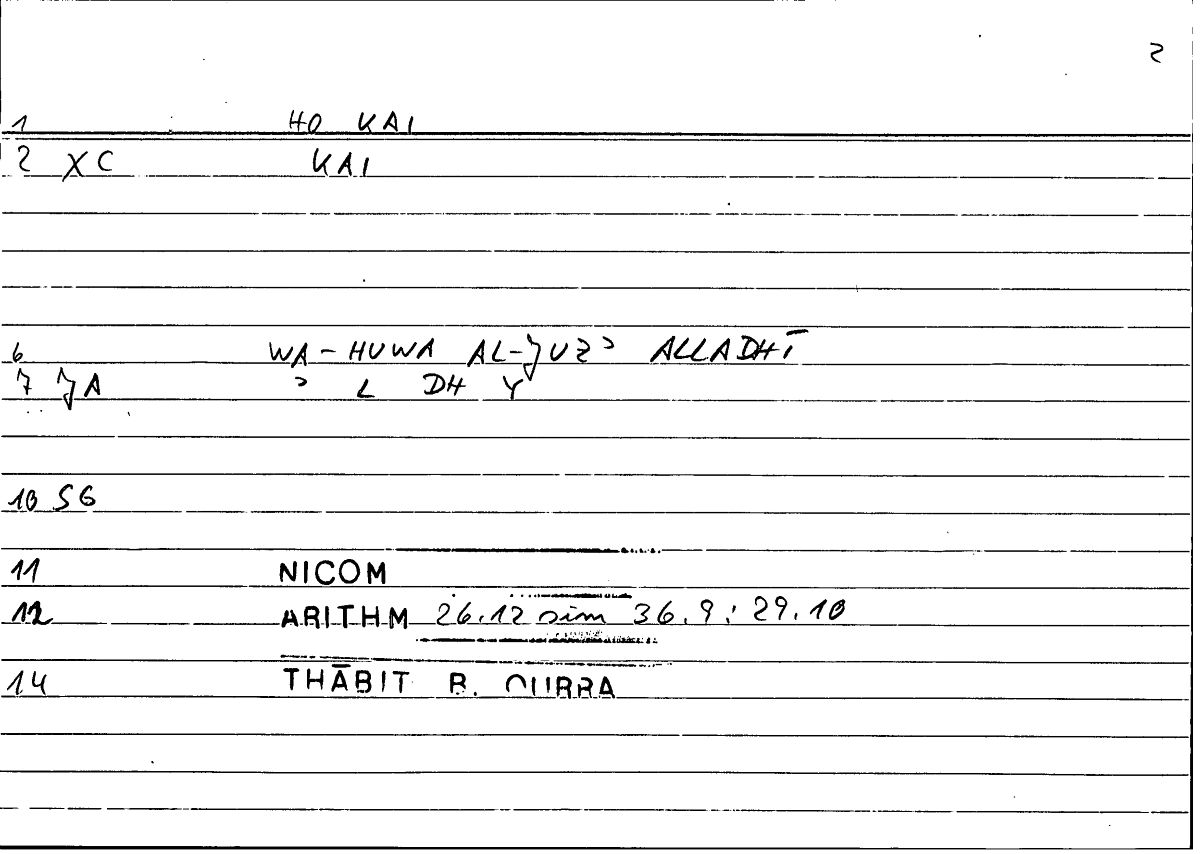 2
1 HO KAI
2 XC KAI
6 WA-HUWA AL-JUZʾ ALLADHĪ
7 JA ʾ L DH Y
10 SG
11 NICOM
12 ARITHM 26.12 sim 36.9; 29.10
14 THĀBIT B. QURRA